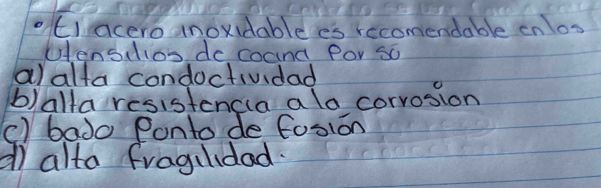 • El acero inoxidable es recomendable en los
utensilios de cocina por su
a) alta conductividad
b) alta resistencia a la corrosion
c) bajo Punto de fusión
d) alta fragilidad.